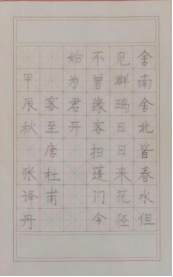 舍南舍北皆春水但
见群鸥日日来花径
不曾缘客扫蓬门今
始为君开
客至 唐 杜甫
甲辰秋 张译丹